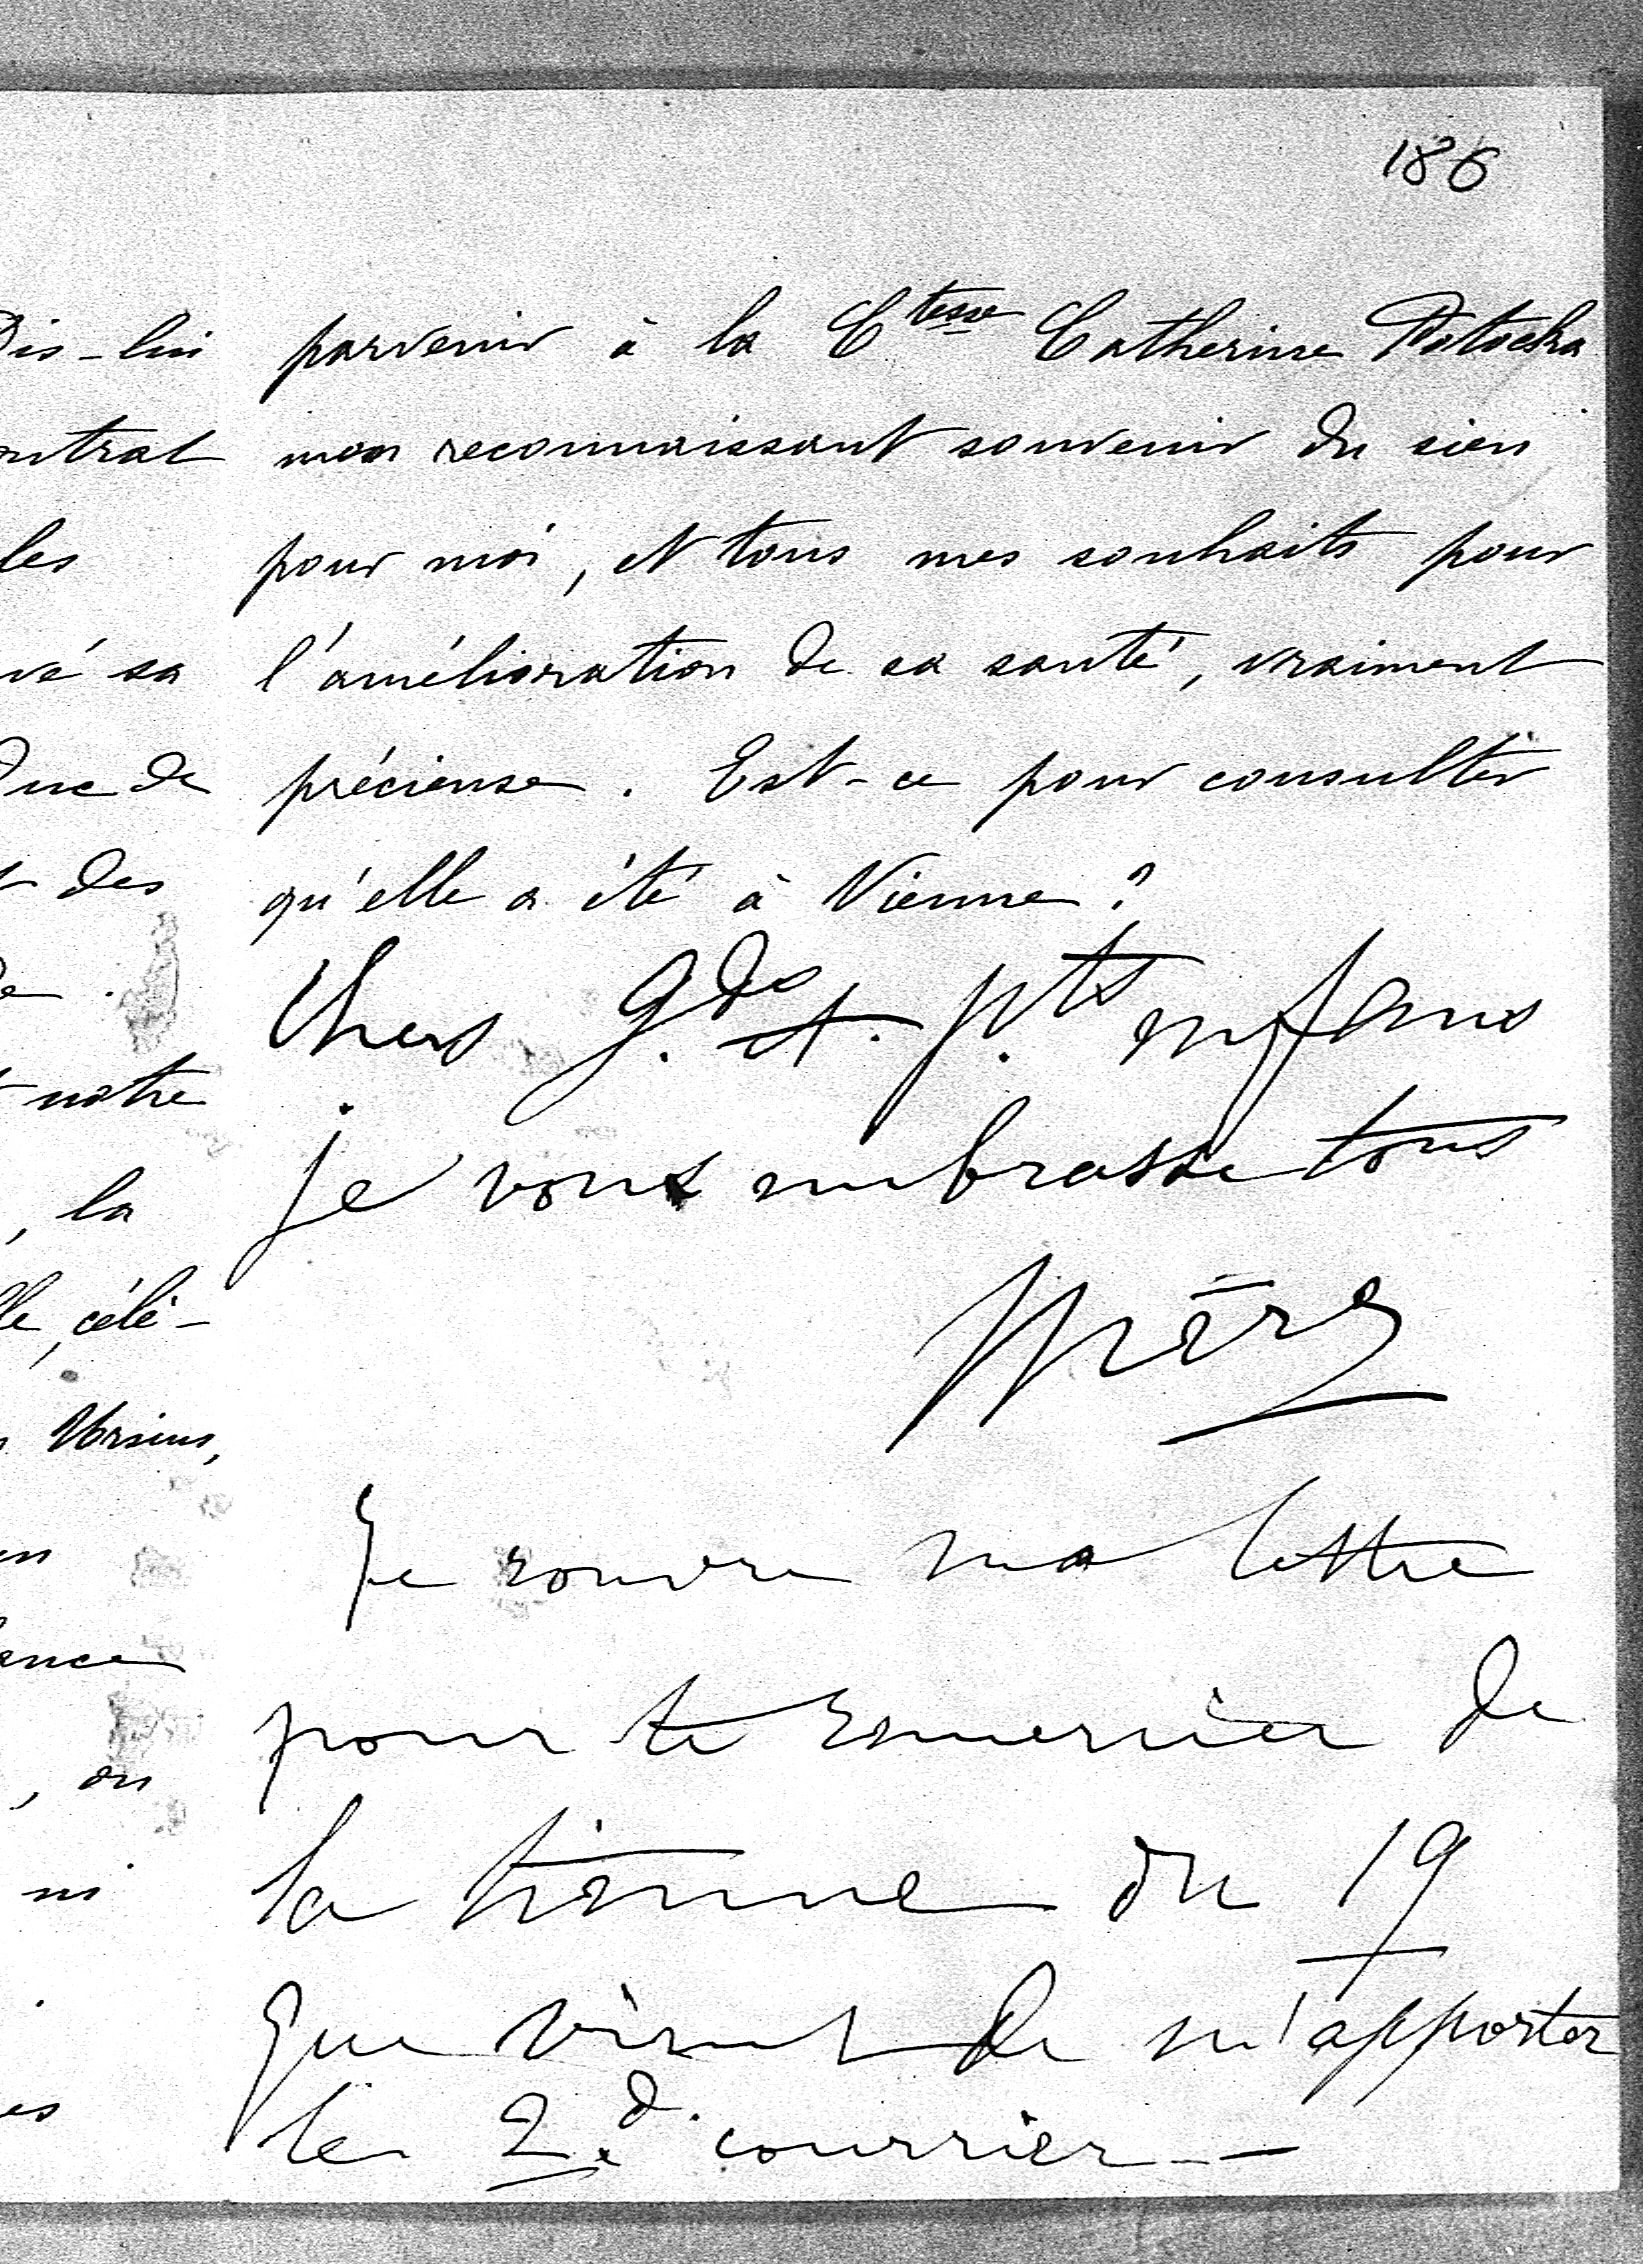 186
Dis-lui
ontrat
les
vé sa
Duc de
des
notre
, la
lle, célé-
Ursins,
en
ance
, on
ni
es
parvenir à la Ctesse Catherine Potocka
mon reconnaissant souvenir du sien
pour moi, et tous mes souhaits pour
l'amélioration de sa santé, vraiment
précieuse. Est-ce pour consulter
qu'elle a été à Vienne?
Chers g.ds et p.ts enfans
je vous embrasse tous
Mère
Je rouvre ma lettre
pour te remercier de
la tienne du 19
que vient de m'apporter
le 2.d courrier_